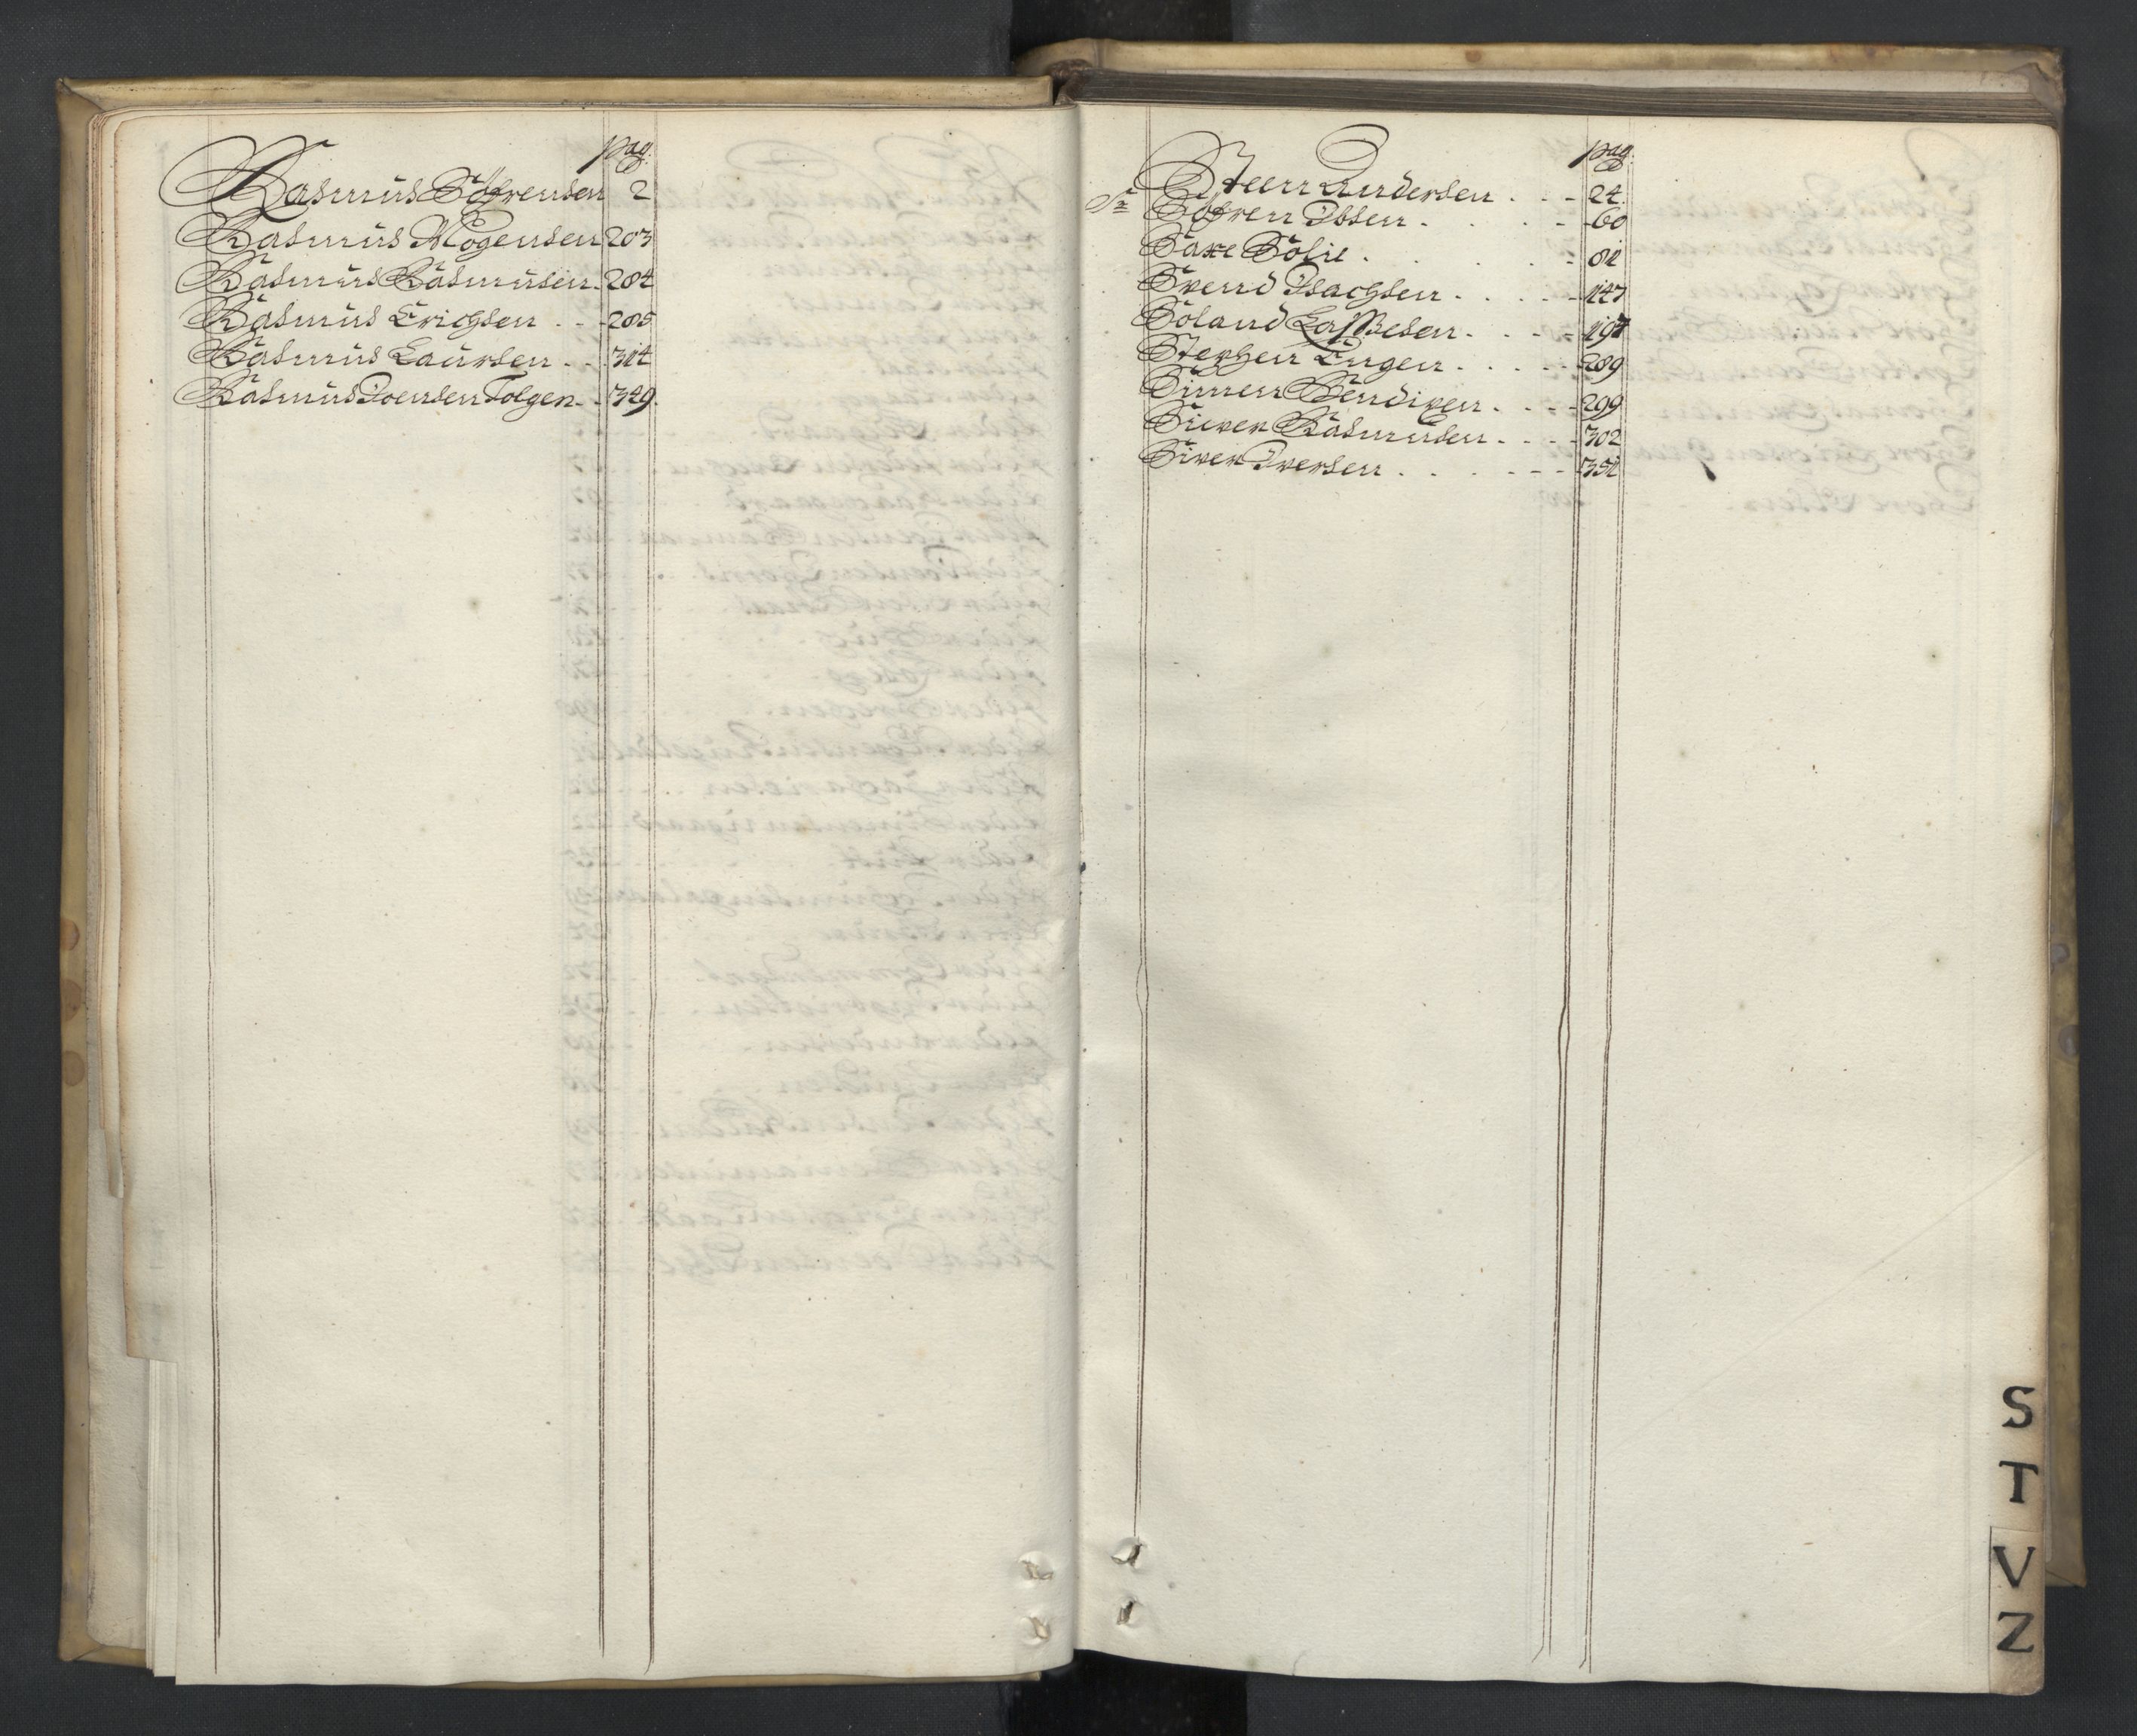 pag:
Rasmus Söfrensen 2
Rasmus Mogensen 203
Rasmus Rasmusen. 284
Rasmus Erichsen . . . 285
Rasmus Laursen . . 314
Rasmus Joensen Tolger. . 349.
pag:
Steen Andersen . . . 24.
Sr Söfren Ibsen . . . . 60
Saxe Solie . . . . 81
Svend Isachsen . . . . . 147
Soland Lassesen . . . . 197
Stephen Engen . . . . . 289
Simen Bendixen . . . . 299
Siver Rasmusen . . . . 302
Siver Iversen . . . . . . 351
S
T
V
Z